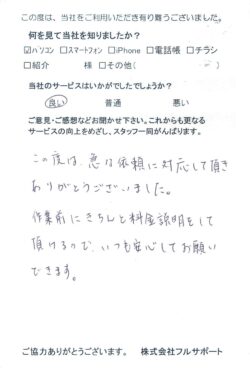 この度は、当社をご利用いただき有り難うございました。
何を見て当社を知りましたか？
☑パソコン □スマートフォン □iPhone □電話帳 □チラシ
□紹介 様 □その他( )
当社のサービスはいかがでしたでしょうか？
良い 普通 悪い
ご意見・ご感想などお聞かせ下さい。これからも更なる
サービスの向上をめざし、スタッフ一同がんばります。
この度は、急な依頼に対応して頂き
ありがとうございました。
作業前にきちんと料金説明をして
頂けるので、いつも安心してお願い
できます。
ご協力ありがとうございます。 株式会社フルサポート